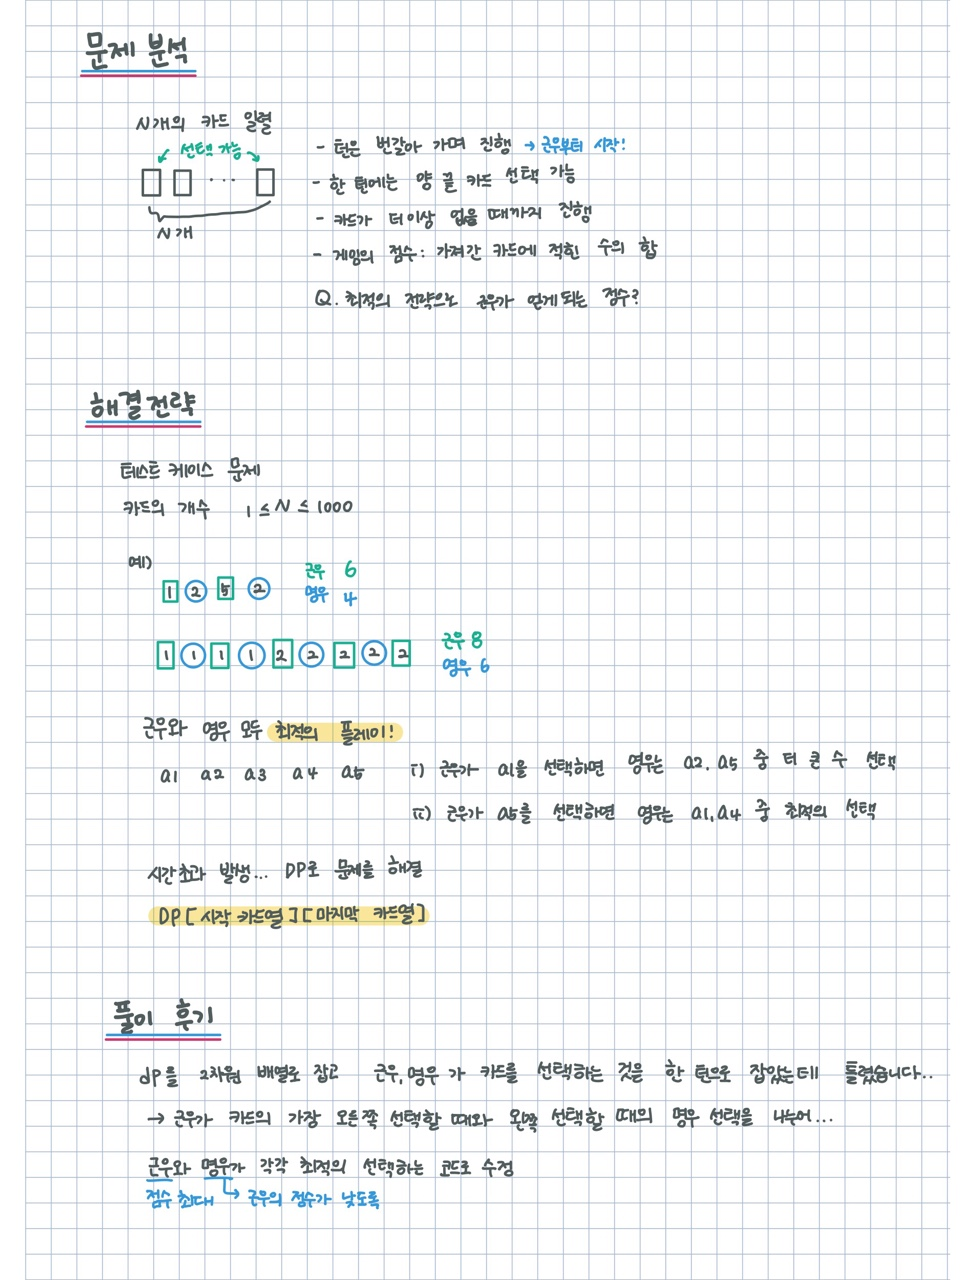 문제 분석
N개의 카드 일렬
선택 가능
N개
- 턴은 번갈아 가며 진행 → 근우부터 시작!
- 한 턴에는 양 끝 카드 선택 가능
- 카드가 더이상 없을 때까지 진행
- 게임의 점수: 가져간 카드에 적힌 수의 합
Q. 최적의 전략으로 근우가 얻게되는 점수?
해결전략
테스트 케이스 문제
카드의 개수 1 ≤ N ≤ 1000
예)
1 2 5 2 근우 6
명우 4
1 1 1 1 2 2 2 2 2 근우 8
명우 6
근우와 명우 모두 최적의 플레이!
a1 a2 a3 a4 a5
i) 근우가 a1을 선택하면 명우는 a2, a5 중 더 큰 수 선택
ii) 근우가 a5를 선택하면 명우는 a1, a4 중 최적의 선택
시간초과 발생... DP로 문제를 해결
DP[시작 카드열][마지막 카드열]
풀이 후기
dp를 2차원 배열로 잡고 근우, 명우가 카드를 선택하는 것을 한 턴으로 잡았는데 틀렸습니다..
→ 근우가 카드의 가장 오른쪽 선택할 때와 왼쪽 선택할 때의 명우 선택을 나누어...
근우와 명우가 각각 최적의 선택하는 코드로 수정
점수 최대 → 근우의 점수가 낮도록